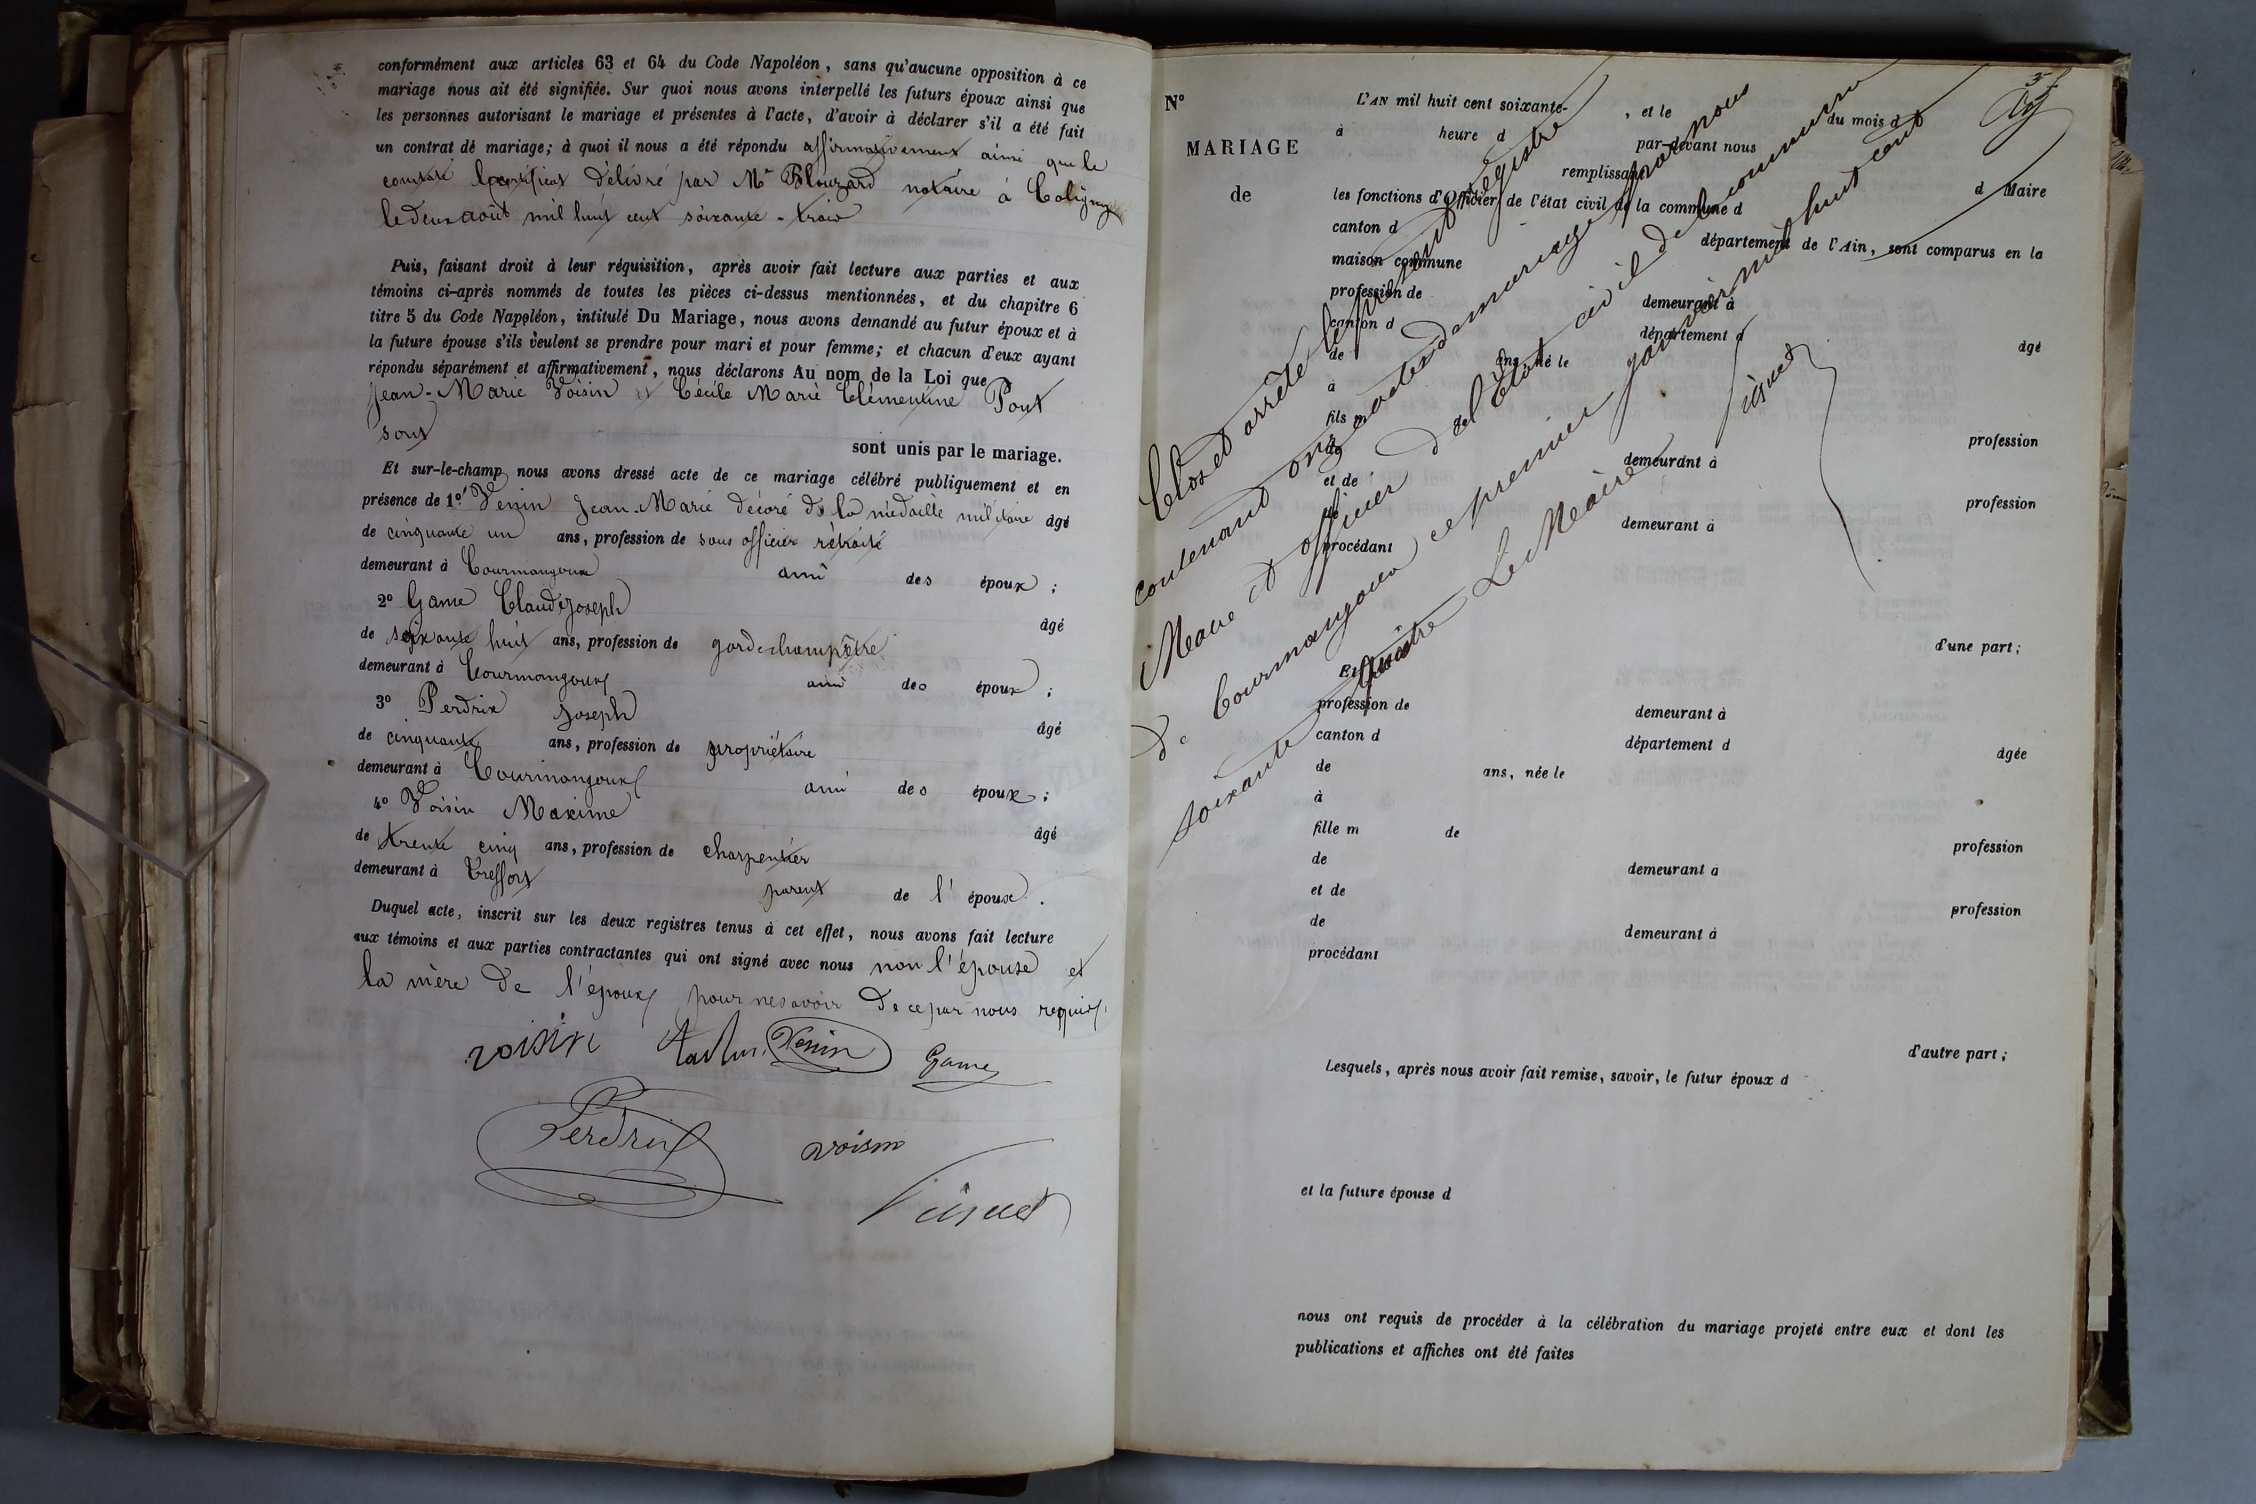 conformément aux articles 63 et 64 du Code Napoléon, sans qu'aucune opposition à ce
mariage nous ait été signifiée. Sur quoi nous avons interpellé les futurs époux ainsi que
les personnes autorisant le mariage et présentes à l'acte, d'avoir à déclarer s'il a été fait
un contrat de mariage; à quoi il nous a été répondu affirmativement ainsi que le
constate le certificat délivré par Me notaire à Coligny
le deux août mil huit cent soixante-trois
Puis, faisant droit à leur réquisition, après avoir fait lecture aux parties et aux
témoins ci-après nommés de toutes les pièces ci-dessus mentionnées, et du chapitre 6
titre 5 du Code Napoléon, intitulé Du Mariage, nous avons demandé au futur époux et à
la future épouse s'ils veulent se prendre pour mari et pour femme; et chacun d'eux ayant
répondu séparément et affirmativement, nous déclarons Au nom de la Loi que
Jean-Marie Voisin et Cécile Marie Clémentine Pont
sont
sont unis par le mariage.
Et sur-le-champ nous avons dressé acte de ce mariage célébré publiquement et en
présence de 1º Venin Jean-Marie décoré de la médaille militaire âgé
de cinquante un ans, profession de sous officier retraité
demeurant à Courmangoux ami des époux ;
2º Game Claude Joseph âgé
de soixante huit ans, profession de garde champêtre
demeurant à Courmangoux ami des époux ;
3º Perdrix Joseph âgé
de cinquante ans, profession de propriétaire
demeurant à Courmangoux ami des époux ;
4º Voisin Maxime âgé
de trente cinq ans, profession de charpentier
demeurant à Treffort parent de l'époux .
Duquel acte, inscrit sur les deux registres tenus à cet effet, nous avons fait lecture
aux témoins et aux parties contractantes qui ont signé avec nous non l'épouse et
la mère de l'époux pour ne savoir de ce par nous requis.
voisin Venin Game
Perdrix voisin
Nº
MARIAGE
de
L'AN mil huit cent soixante- , et le du mois d
à heure d par-devant nous
remplissant
les fonctions d'Officier de l'état civil de la commune d d Maire
canton d département de l'Ain, sont comparus en la
maison commune
profession de demeurant à
canton d département d
de ans, né le âgé
à
fils m de profession
de demeurant à
et de profession
de demeurant à
procédant
d'une part;
Et
profession de demeurant à
canton d département d
de ans, née le âgée
à
fille m de
de demeurant à profession
et de
de demeurant à profession
procédant
d'autre part;
Lesquels, après nous avoir fait remise, savoir, le futur époux d
et la future épouse d
nous ont requis de procéder à la célébration du mariage projeté entre eux et dont les
publications et affiches ont été faites
Clos et arrêté le présent registre
contenant onze actes de mariage par nous
Maire et officier de l'état civil de la commune
de Courmangoux ce premier janvier mil huit cent
soixante quatre Le Maire